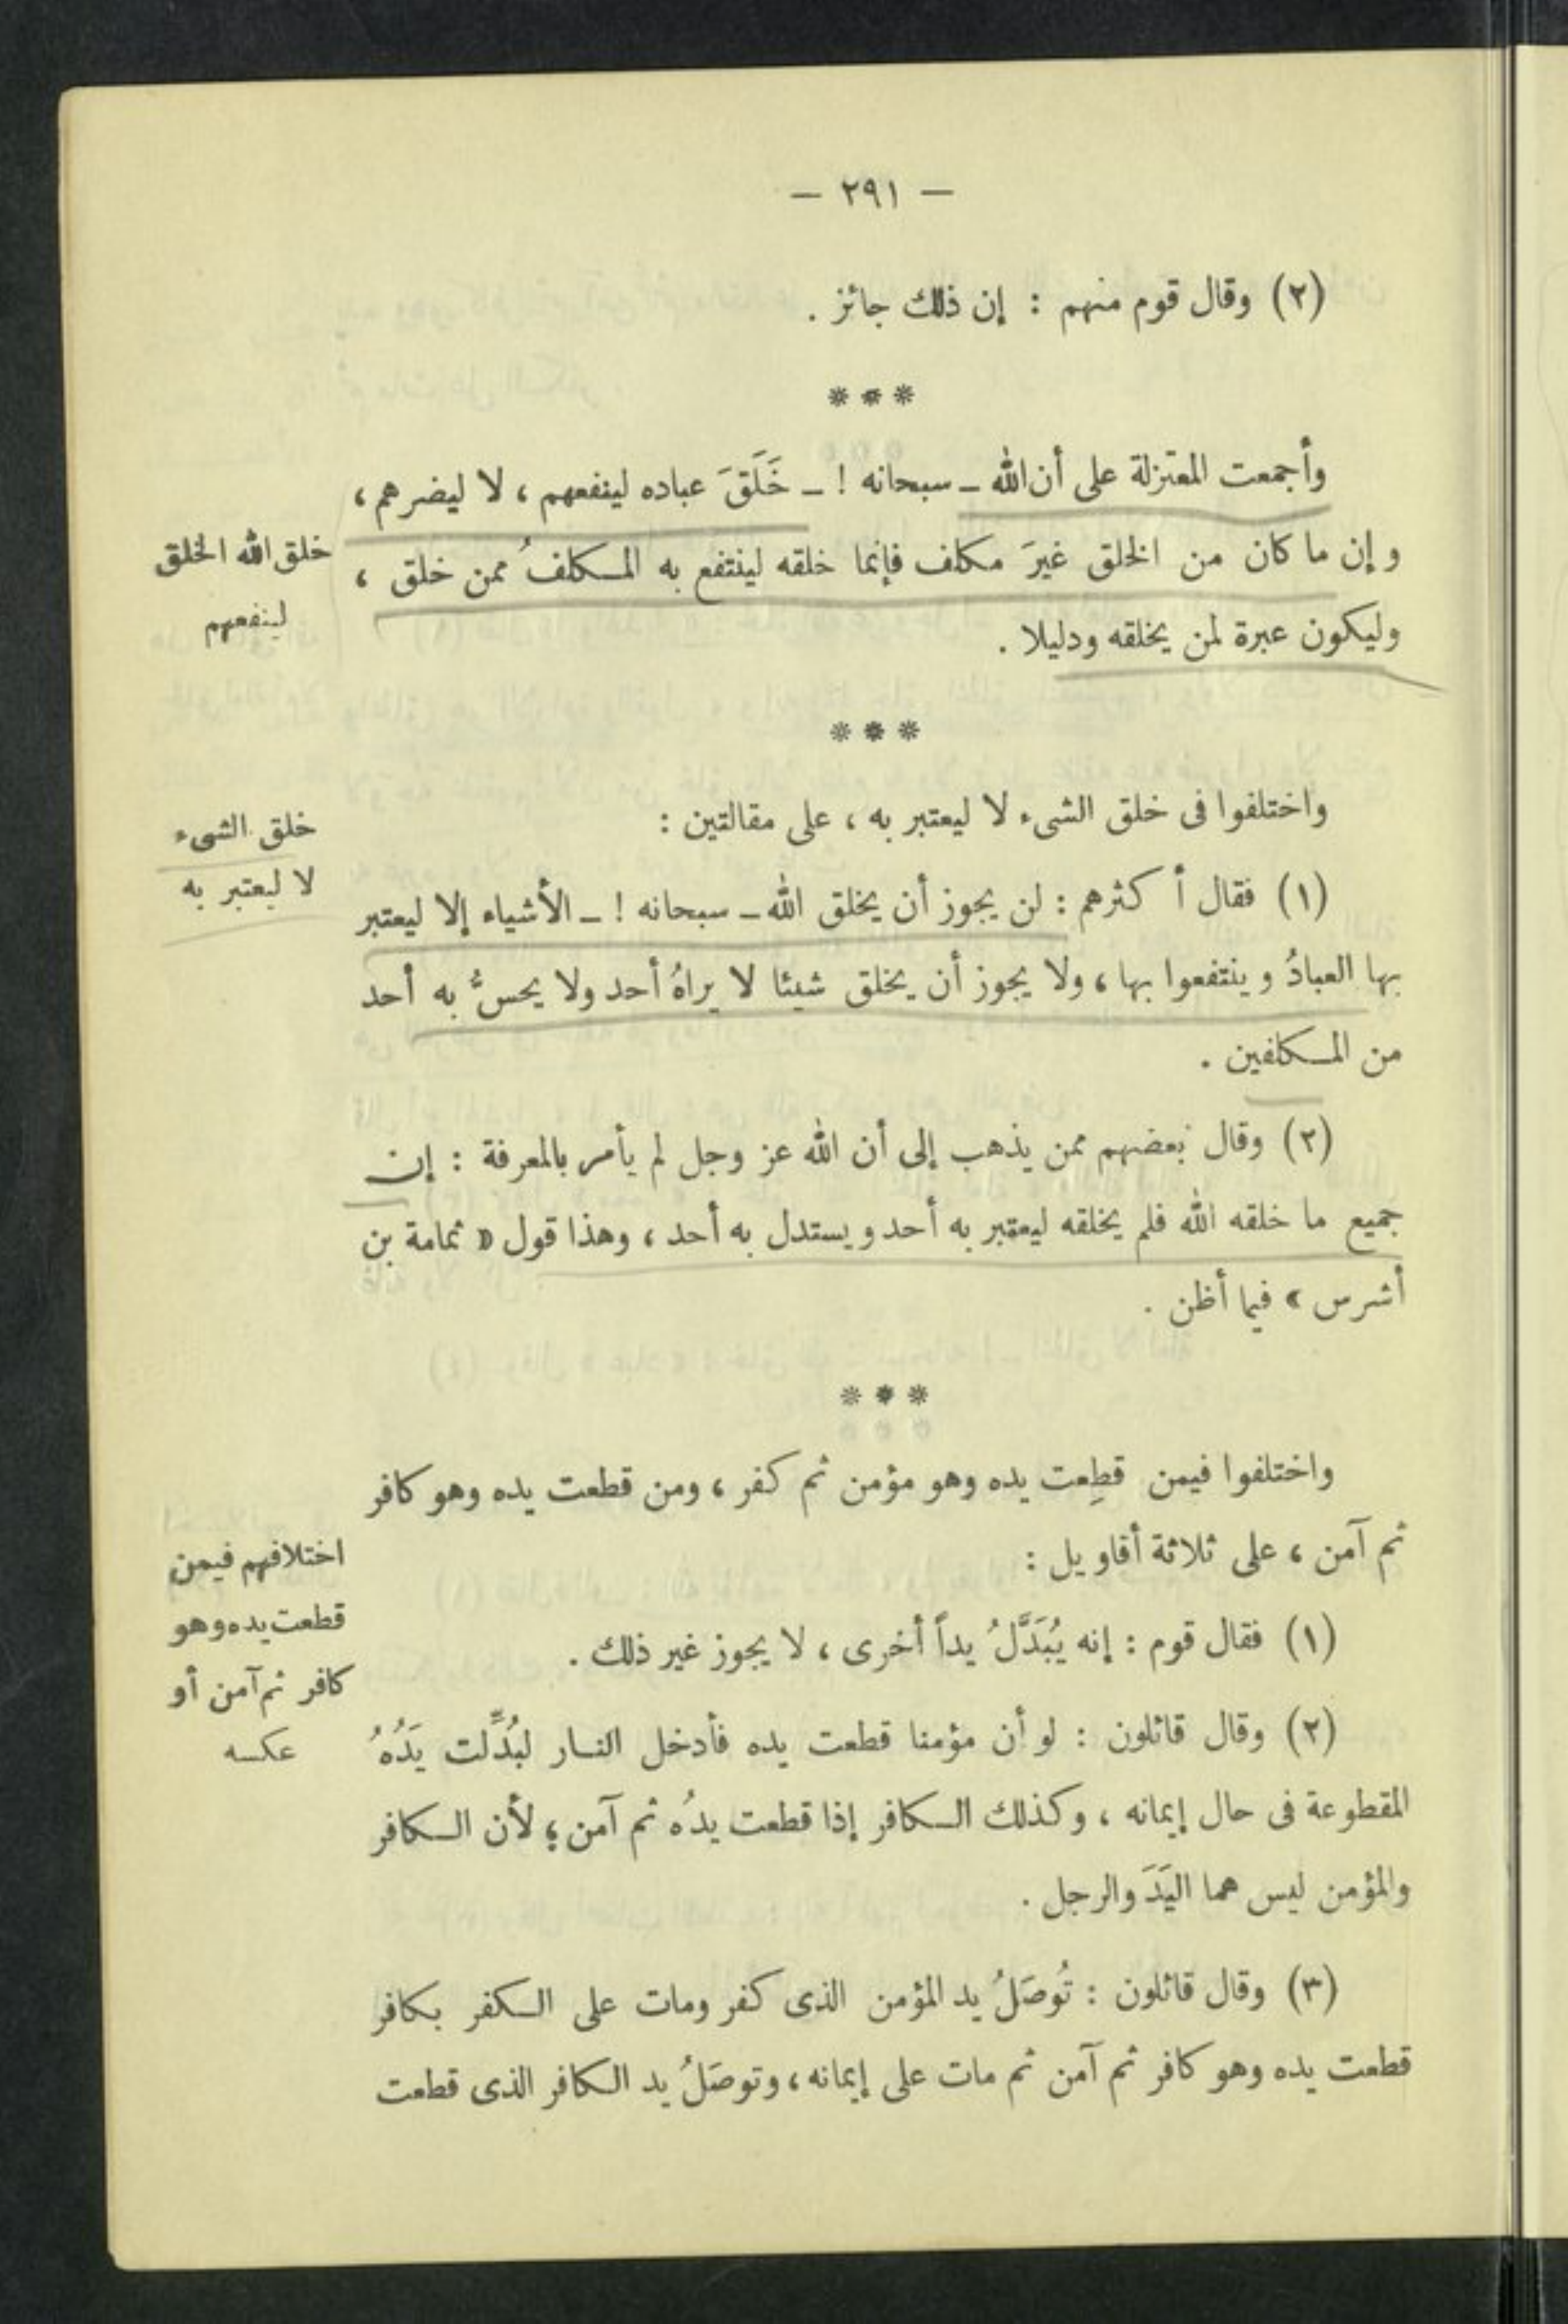 — ٢٩١ —
(٢) وقال قوم منهم : إن ذلك جائز .
***
وأجمعت المعتزلة على أن الله ـ سبحانه ! ـ خَلَقَ عباده لينفعهم ، لا ليضرهم ،
وإن ما كان من الخلق غيرَ مكلف فإنما خلقه لينتفع به المكلفُ ممن خلق ،
وليكون عبرة لمن يخلقه ودليلا .
خلق الله الخلق
لينفعهم
***
واختلفوا فى خلق الشىء لا ليعتبر به ، على مقالتين :
خلق الشىء
لا ليعتبر به
(١) فقال أكثرهم : لن يجوز أن يخلق الله ـ سبحانه ! ـ الأشياء إلا ليعتبر
بها العبادُ وينتفعوا بها ، ولا يجوز أن يخلق شيئا لا يراهُ أحد ولا يحسُّ به أحد
من المكلفين .
(٢) وقال بعضهم ممن يذهب إلى أن الله عز وجل لم يأمر بالمعرفة : إن
جميع ما خلقه الله فلم يخلقه ليعتبر به أحد ويستدل به أحد ، وهذا قول « ثمامة بن
أشرس » فيما أظن .
***
واختلفوا فيمن قطِعت يده وهو مؤمن ثم كفر ، ومن قطعت يده وهو كافر
ثم آمن ، على ثلاثة أقاويل :
اختلافهم فيمن
قطعت يده وهو
كافر ثم آمن أو
عكسه
(١) فقال قوم : إنه يُبَدَّلُ يداً أخرى ، لا يجوز غير ذلك .
(٢) وقال قائلون : لو أن مؤمنا قطعت يده فأدخل النار لبُدِّلت يَدُهُ
المقطوعة فى حال إيمانه ، وكذلك الكافر إذا قطعت يدُه ثم آمن ؛ لأن الكافر
والمؤمن ليس هما اليَدَ والرجل .
(٣) وقال قائلون : تُوصَلُ يد المؤمن الذى كفر ومات على الكفر بكافر
قطعت يده وهو كافر ثم آمن ثم مات على إيمانه ، وتوصَلُ يد الكافر الذى قطعت